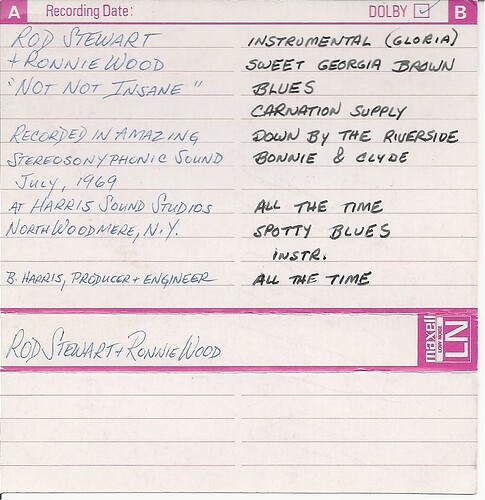 A Recording Date: DOLBY B
ROD STEWART
+ RONNIE WOOD
"NOT NOT INSANE"
RECORDED IN AMAZING
STEREOSONYPHONIC SOUND
JULY, 1969
AT HARRIS SOUND STUDIOS
NORTH WOODMERE, N.Y.
B. HARRIS, PRODUCER + ENGINEER
INSTRUMENTAL (GLORIA)
SWEET GEORGIA BROWN
BLUES
CARNATION SUPPLY
DOWN BY THE RIVERSIDE
BONNIE & CLYDE
ALL THE TIME
SPOTTY BLUES
INSTR.
ALL THE TIME
ROD STEWART + RONNIE WOOD
maxell
LOW NOISE
LN